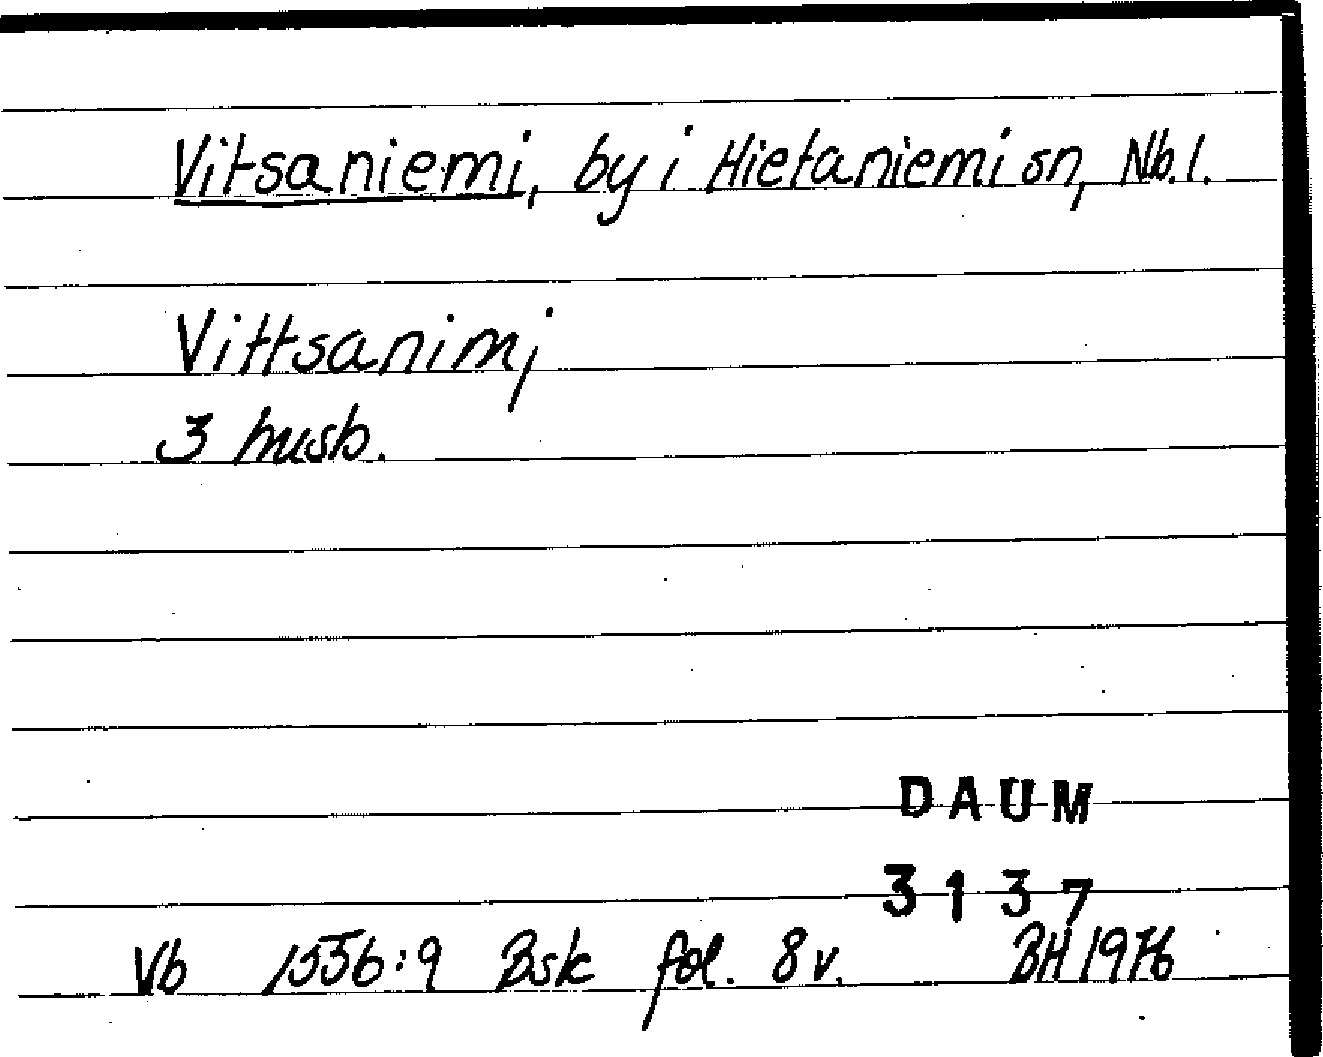 Vitsaniemi, by i Hietaniemi sn, Nb.l.
Vittsanimj
3 husb.
DAUM
3137
Vb 1556:9 Bsk fol. 8v. BH 1976